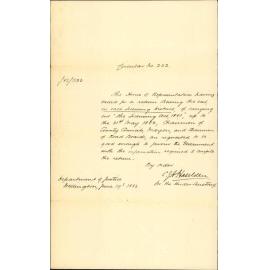 Circular No. 232.
/82/832
The House of Representatives having
asked for a return showing the cost
in each Licensing District of carrying
out "The Licensing Act, 1881," up to
the 31st May 1882, Chairmen of
County Councils, Mayors, and Chairmen
of Road Boards, are requested to be
good enough to furnish the Government
with the information required to compile
the return.
By order
Department of Justice
Wellington, June 19th 1882
for the Under Secretary